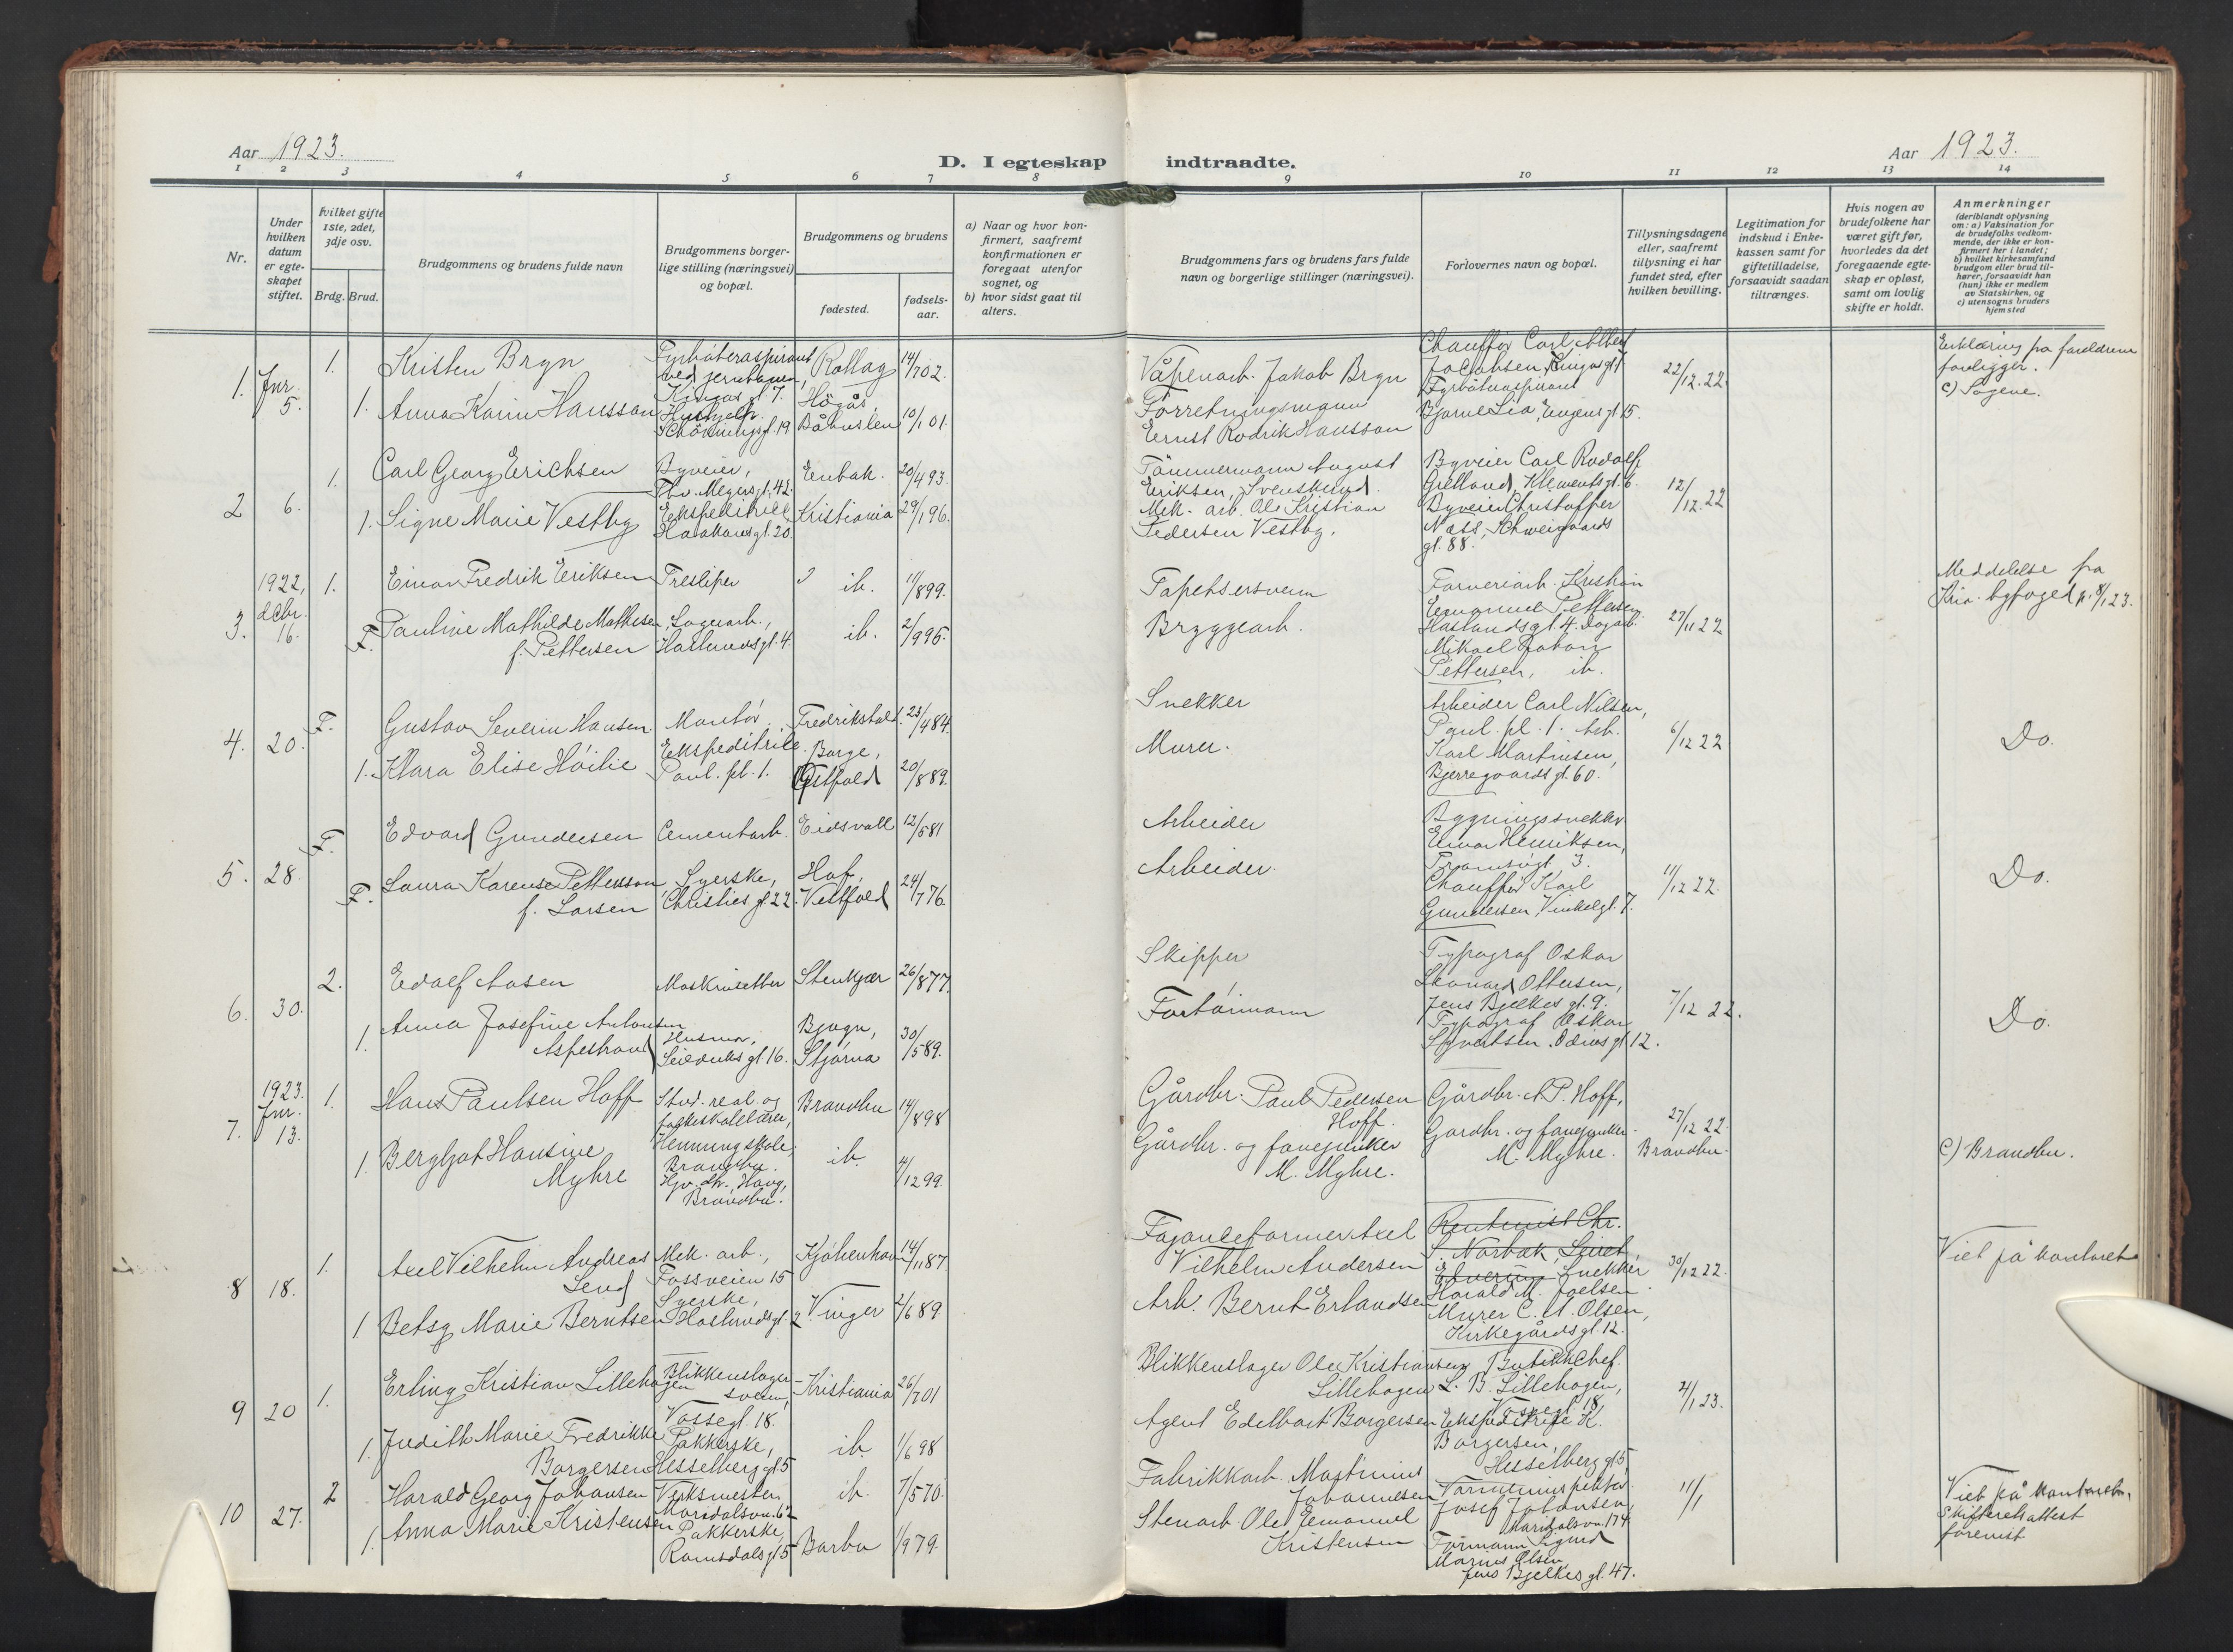 Aar 1923.
D. I egteskap indtraadte.
Aar 1923.
1 2 3 4 5 6 7 8 9 10 11 12 13 14
Nr.
Under hvilken datum er egteskapet stiftet.
hvilket gifte 1ste, 2det, 3dje osv.
Brdg. Brud.
Brudgommens og brudens fulde navn
Brudgommens borgerlige stilling (næringsvei) og bopæl.
Brudgommens og brudens
fødested.
fødselsaar.
a) Naar og hvor konfirmert, saafremt konfirmationen er foregaat utenfor sognet, og
b) hvor sidst gaat til alters.
Brudgommens fars og brudens fars fulde navn og borgerlige stillinger (næringsvei).
Forlovernes navn og bopæl.
Tillysningsdagene eller, saafremt tillysning ei har fundet sted, efter hvilken bevilling.
Legitimation for indskud i Enkekassen samt for giftetilladelse, forsaavidt saadan tiltrænges.
Hvis nogen av brudefolkene har været gift før, hvorledes da det foregaaende egteskap er opløst, samt om lovlig skifte er holdt.
Anmerkninger (deriblandt oplysning om: a) Vaksination for de brudefolks vedkommende, der ikke er konfirmert her i landet; b) hvilket kirkesamfund brudgom eller brud tilhører, forsaavidt han (hun) ikke er medlem av Statskirken, og c) utensogns bruders hjemsted
1. Jnr. 5.
1. Kristen Bryn
Fyrbøteraspirant ved jernbanen, Kingos gt. 7.
Rollag 14/702.
1. Anna Karin Hansson
Hushjelp. Schøningsgt. 19
Högås, Båhuslen 10/101.
Våpenarb. Jakob Bryn
Forretningsmann
Ernst Rodrik Hansson
Chauffør Carl Albert
Jacobsen, Kingosgt 7.
Fyrbøteraspirant
Bjarne Lia, Eugens gt. 15.
22/12.22.
Erklæring fra forældrene
foreligger.
c) Sogene.
2 6.
1. Carl Georg Erichsen
Byveier, Thv. Meyersgt. 42.
Enebak. 20/493.
1. Signe Marie Vestby
Ekspeditrice Haakonsgt. 20.
Kristiania 29/196.
Tømmermann August
Eriksen, Svenskerud.
Mek. arb. Ole Kristian
Pedersen Vestby.
Byveier Carl Rudolf
Grelland, Klementsgt. 6.
Byveier Christoffer
Næss, Schweigaards
gt. 88.
12/12.22
3. 1922, dcbr. 16.
1. Einar Fredrik Eriksen
Tresliper
ib. 11/899.
F. Pauline Mathilde Mathisen
f. Pettersen
Lagerarb., Haslumsgt. 4.
ib. 2/995.
Tapetsersvenn
Bryggearb.
Farveriarb. Kristian
Emanuel Pettersen
Haslundsgt. 4. Dagarb.
Mikael Johan
Pettersen, ib.
27/11 22
Meddelelse fra
Kria. byfoged p. 8/1 23.
4. 20.
F. Gustav Severin Hansen
Montør.
Fredrikstad. 23/484.
1. Klara Elise Høilie
Ekspeditrice. Paul. pl. 1.
Borge, Østfold 20/889.
Snekker
Murer.
Arbeider Carl Nilsen,
Paul. pl. 1. Arb.
Karl Martinsen,
Bjerregaards gt. 60.
6/12 22
Do.
5. 28.
F. Edvard Gundersen
Cementarb.
Eidsvoll 12/581
F. Laura Karense Pettersson
f. Larsen
Syerske, Christies gt. 22.
Hof, Vestfold 24/776.
Arbeider
Arbeider.
Bygningssnekker
Einar Henriksen,
3.
Chauffør Karl
Gundersen, Vinkelgt. 7.
11/12 22.
Do.
6. 30.
2. Edolf Aasen
Maskinsetter
Stenkjær 26/877.
1. Anna Josefine Antonsen
Aspestrand
Husmor, Seilduks gt 16.
Bjugn, Stjørna 30/589.
Skipper
Fortøimann
Typograf Oskar
Leonard Ottersen,
Jens Bjelkes gt. 9.
Typograf Oskar
Syvertsen. Odins gt 12.
7/12 22.
Do.
7. 1923. Jnr. 13.
1. Hans Paulsen Hoff
Stud. real. og folkeskolelærer, Henning skole, Brandbu.
Brandbu 14/898
1. Bergljot Hansine
Myhre
Haug, Brandbu.
ib. 4/1299.
Gårdbr. Paul Pedersen
Hoff.
Gårdbr. og fanejunker
M. Myhre.
Gårdbr. A. P. Hoff,
Gårdbr. og fanejunker
M. Myhre.
27/12 22.
Brandbu.
c) Brandbu.
8 18.
1. Axel Vilhelm Andreas
Lend
Mek. arb., Fossveien 15
Kjøbenhavn 14/1187
1 Betsy Marie Berntsen
Syerske, Haslundsgt. 2.
Vinger 2/689.
Fajanseformer Axel
Vilhelm Andersen
Arb. Bernt Erlandsen
Rentenist Chr.
S. Norbak, Leiret,
Elverum Snekker
Harald M. Joelsen
Murer C. A. Olsen,
Kirkegårdsgt. 12.
30/12 22.
Viet på kontoret
9 20
1. Erling Kristian Lillehagen
Blikkenslagersvenn, Vossegt. 18.
Kristiania 26/701
1. Judith Marie Fredrikke
Borgersen
Pakkerske, Hesselberggt 5
ib. 1/698
Blikkenslager Ole Kristiansen
Lillehagen
Agent Edelbart Borgersen
Butikkchef.
L. B. Lillehagen,
Vossegt. 18.
Ekspeditrice K.
Borgersen,
Hesselberg gt 5
4/1 23.
10 27.
2 Harald Georg Johansen
Verksmester Maridalsvn. 62
ib. 7/570.
1. Anna Marie Kristensen
Pakkerske, Romsdalsgt 5
Barbu 1/979.
Fabrikkarb. Martinius
Johannesen
Stenarb. Ole Emanuel
Kristensen
Varmeinspektør
Josef Johansen,
Maridalsvn. 174
Formann Sigurd
Marius Olsen
Jens Bjelkes gt. 47.
11/1
Viet på kontoret.
Skifteretsattest
forevist